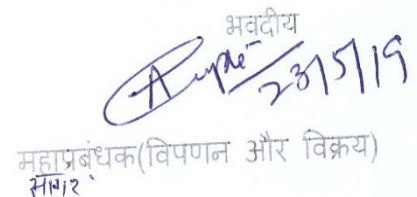 भवदीय
23/5/19
महाप्रबंधक(विपणन और विक्रय)
सागर